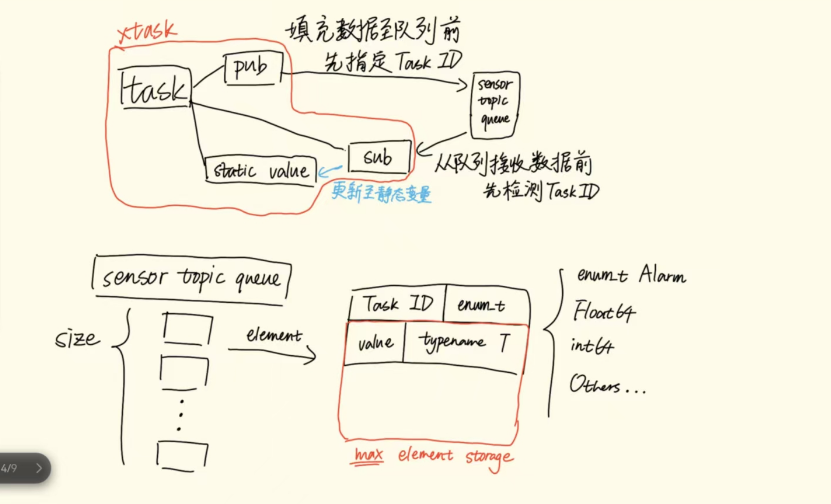 xtask
填充数据至队列前
先指定Task ID
pub
task
sensor
topic
queue
sub
static value
从队列接收数据前
先检测TaskID
更新至静态变量
sensor topic queue
size
element
Task ID
enum_t
value
typename T
max element storage
enum_t Alarm
Float64
int64
Others...
4/9